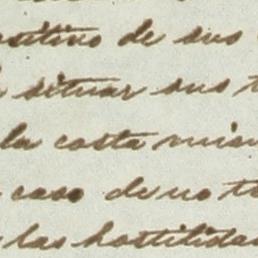 ositivo de sus
situar sus t
la costa mien
caso de no te
las hostilida